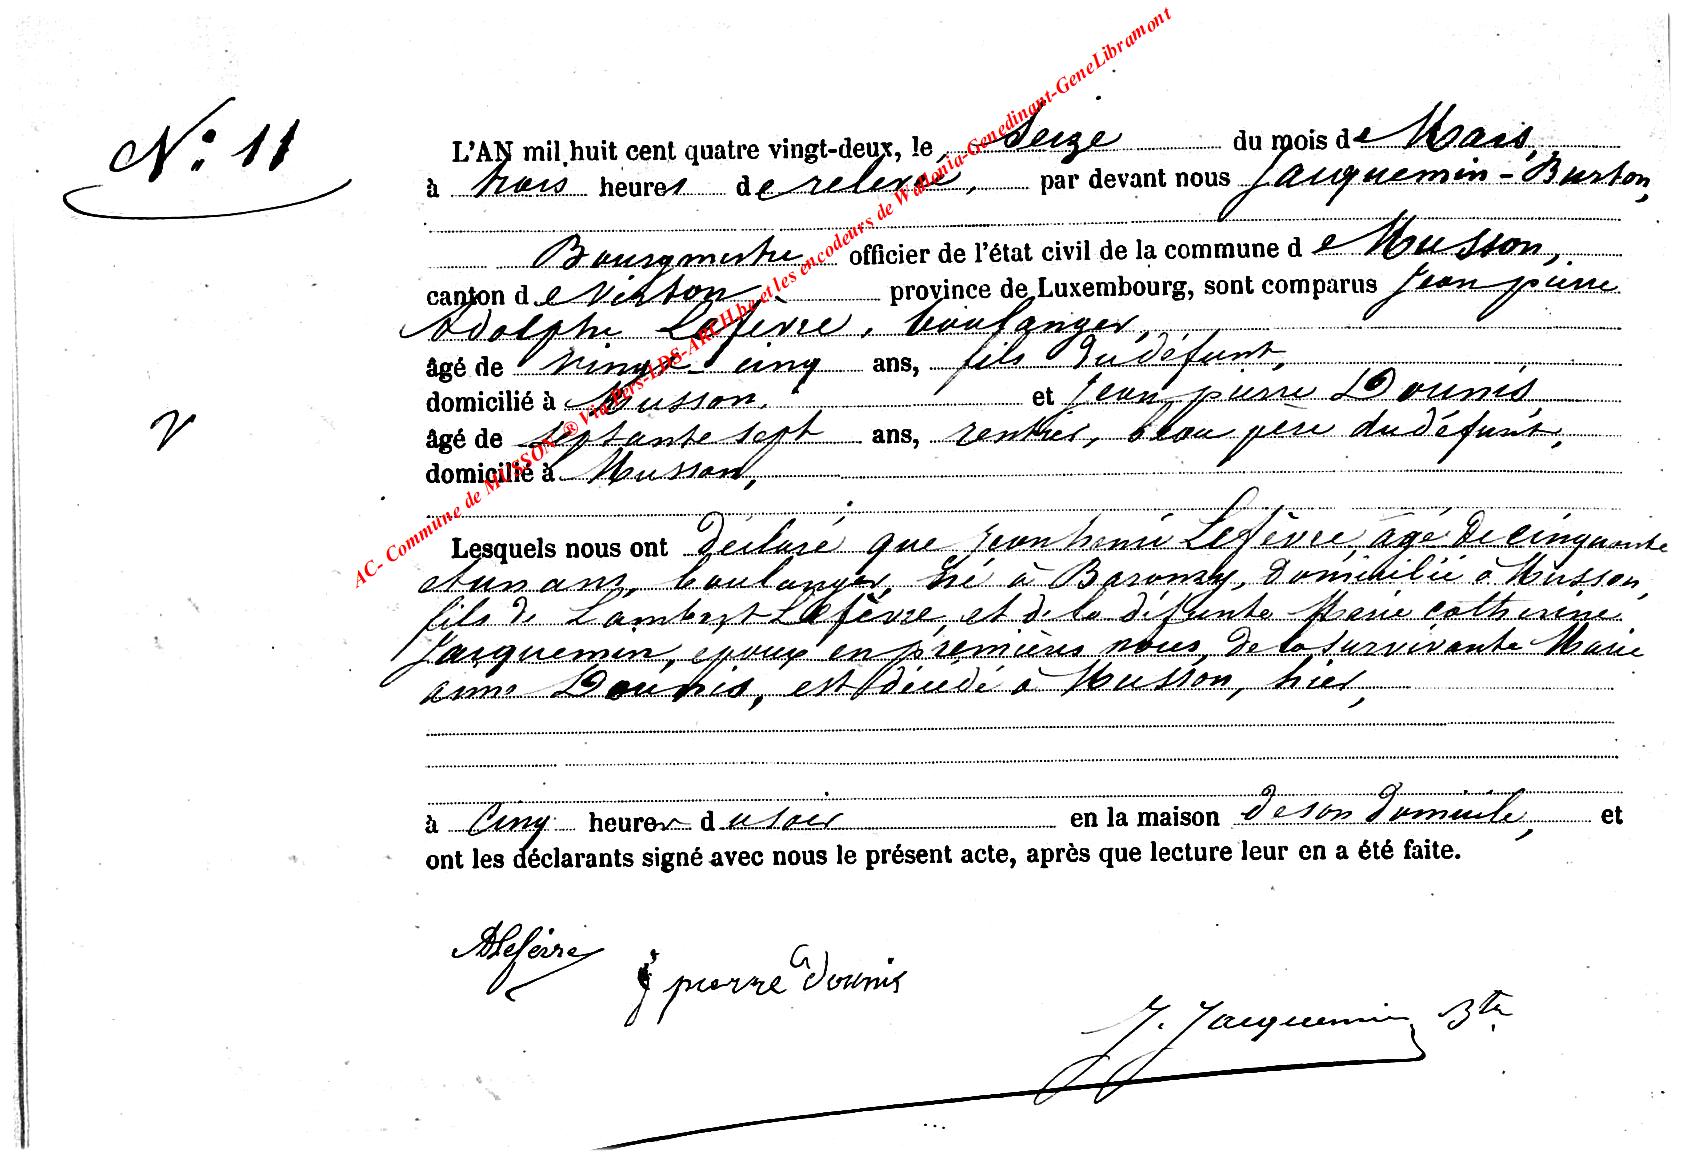 N° 11
L'AN mil huit cent quatre vingt-deux, le Seize du mois de Mars,
à trois heures de relevé, par devant nous Jacquemin-Burton,
Bourgmestre officier de l'état civil de la commune de Musson,
canton de Virton, province de Luxembourg, sont comparus Jean pierre
Adolphe Lefèvre, boulanger,
âgé de vingt-cinq ans, fils du défunt,
domicilié à Musson, et Jean pierre Dounis
âgé de septante sept ans, rentier, beau père du défunt,
domicilié à Musson,
Lesquels nous ont déclaré que Jean henri Lefèvre, âgé de cinquante
et un ans, boulanger, né à Baranzy, domicilié à Musson,
fils de Lambert Lefèvre, et de la défunte Marie catherine
Jacquemin, époux en premières noces, de la survivante Marie
anne Dounis, est décédé à Musson, hier,
à Cinq heures du soir en la maison de son domicile, et
ont les déclarants signé avec nous le présent acte, après que lecture leur en a été faite.
ALefèvre
J pierre dounis
J. Jacquemin Btn
AC- Commune de MUSSON ® Via Pers-LDS-ARCH.be et les encodeurs de Wallonia-Genedinant-GeneLibramont